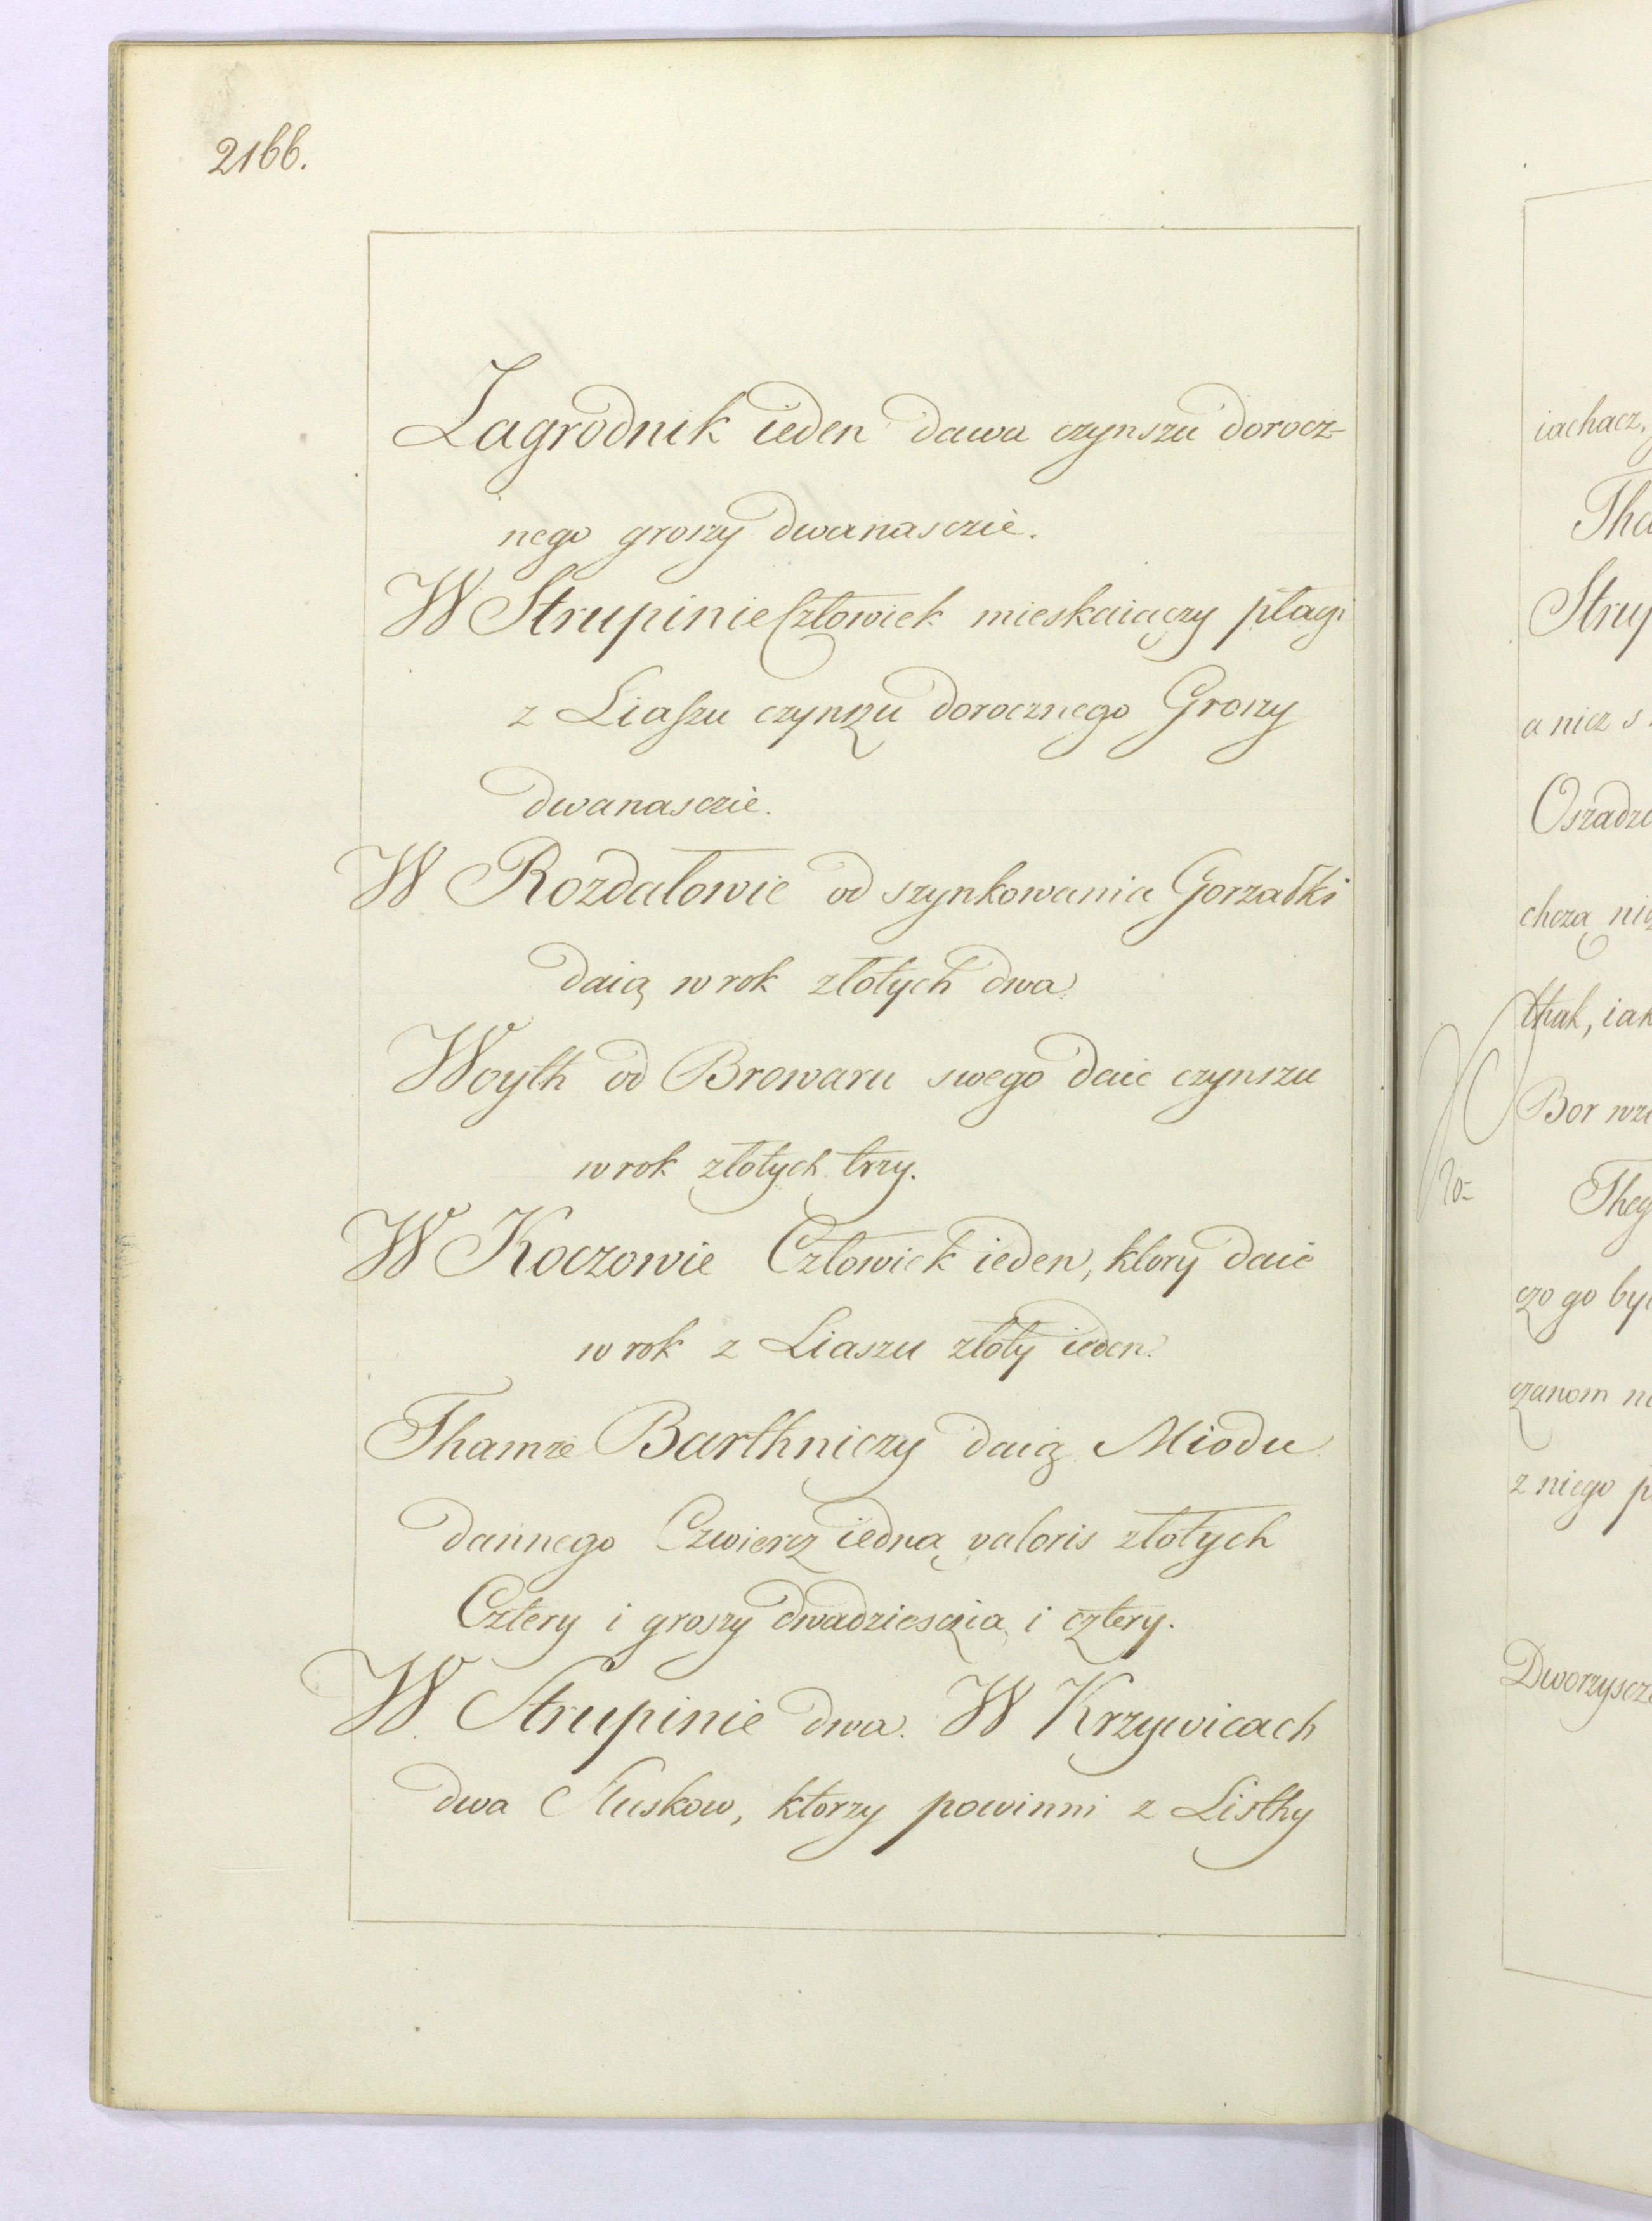 2166.
Zagrodnik ieden dawa czynszu dorocz-
nego groszy dwanasczie.
W Strupinie Człowiek mieskaiączy płaczi
z Liaszu czynszu dorocznego Groszy
dwanasczie.
W Rozdałowie od szynkowania Gorzałki
daią w rok złotych dwa.
Woyth od Browaru swego daie czynszu
w rok złotych trzy.
W Koczowie Człowiek ieden, ktory daie
w rok z Liaszu złoty ieden.
Thamze Barthniczy daią Miodu
dannego Czwiercz iedną valoris złotych
Cztery i groszy dwadziesczia i cztery.
W Strupinie dwa. W Krzywicach
dwa Służkow, ktorzy powinni z Listhy
iachacz,
Tha
Strup
a nicz s
Oszadzo
chczą nicz
thak, iak
Bor wzi
Theg
czo go by
czanom n
z niego p
Dworzyscz